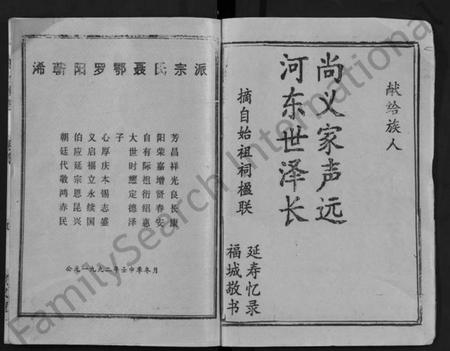 献给族人
尚义家声远
河东世泽长
摘自始祖祠楹联
延寿忆录
福城敬书
浠蕲阳罗鄂聂氏宗派
芳昌祥光良长康
阳荣嘉增贤春安
自有际祖衍绍惠
大世时懋定德泽
子
心厚庆本锡志盛
义启福立永续国
伯应延宗恩昆兴
朝廷代敬鸿赤民
公元一九九二年壬申季冬月
FamilySearch International